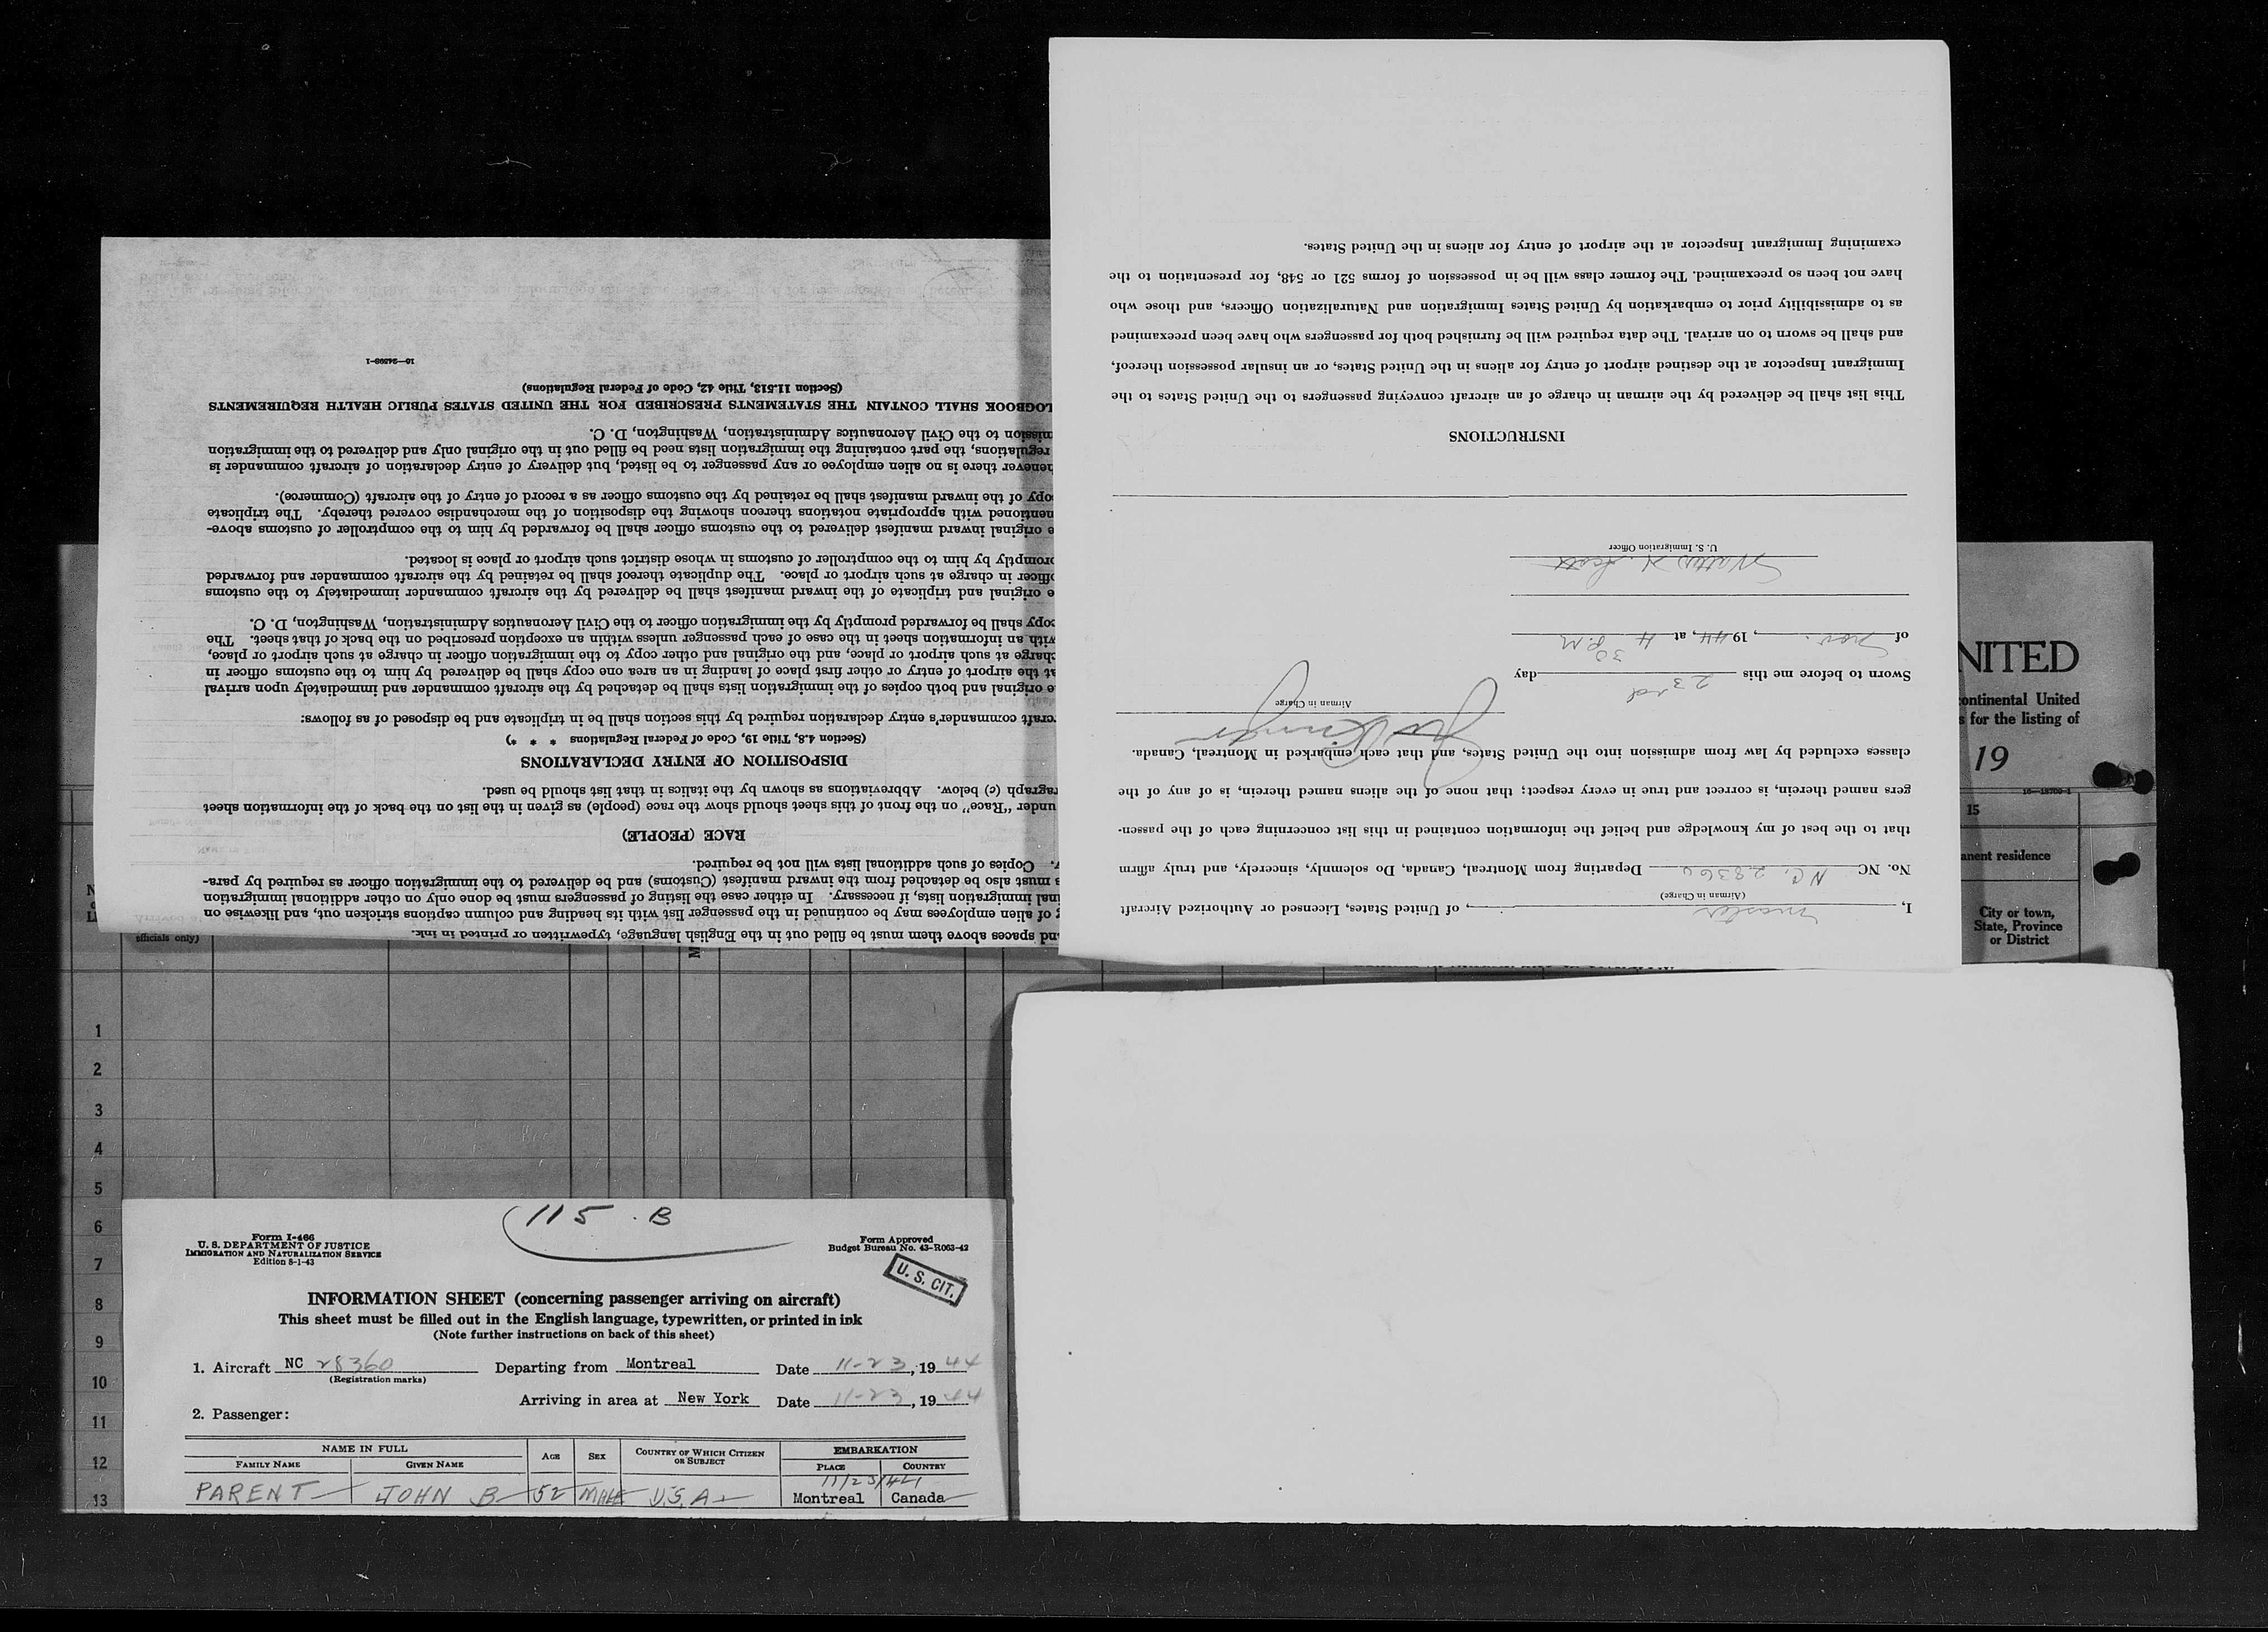 I, Master, of United States, Licensed or Authorized Aircraft
(Airman in Charge)
No. NC N.C. 28360 Departing from Montreal, Canada, Do solemnly, sincerely, and truly affirm
that to the best of my knowledge and belief the information contained in this list concerning each of the passen-
gers named therein, is correct and true in every respect; that none of the aliens named therein, is of any of the
classes excluded by law from admission into the United States, and that each embarked in Montreal, Canada.
Airman in Charge
Sworn to before me this 23rd day
of Nov., 1944, at 4 30 P.M
Walter N. Scott
U. S. Immigration Officer
INSTRUCTIONS
This list shall be delivered by the airman in charge of an aircraft conveying passengers to the United States to the
Immigrant Inspector at the destined airport of entry for aliens in the United States, or an insular possession thereof,
and shall be sworn to on arrival. The data required will be furnished both for passengers who have been preexamined
as to admissibility prior to embarkation by United States Immigration and Naturalization Officers, and those who
have not been so preexamined. The former class will be in possession of forms 521 or 548, for presentation to the
examining Immigrant Inspector at the airport of entry for aliens in the United States.
and spaces above them must be filled out in the English language, typewritten or printed in ink.
of alien employees may be continued in the passenger list with its heading and column captions stricken out, and likewise on
immigration lists, if necessary. In either case the listing of passengers must be done only on other additional immigration
must also be detached from the inward manifest (Customs) and be delivered to the immigration officer as required by para-
Copies of such additional lists will not be required.
RACE (PEOPLE)
under "Race" on the front of this sheet should show the race (people) as given in the list on the back of the information sheet
ragraph (c) below. Abbreviations as shown by the italics in that list should be used.
DISPOSITION OF ENTRY DECLARATIONS
(Section 4.8, Title 19, Code of Federal Regulations * * *)
craft commander's entry declaration required by this section shall be in triplicate and be disposed of as follows:
e original and both copies of the immigration lists shall be detached by the aircraft commander and immediately upon arrival
at the airport of entry or other first place of landing in an area one copy shall be delivered by him to the customs officer in
charge at such airport or place, and the original and other copy to the immigration officer in charge at such airport or place,
with an information sheet in the case of each passenger unless within an exception prescribed on the back of that sheet. The
copy shall be forwarded promptly by the immigration officer to the Civil Aeronautics Administration, Washington, D. C.
e original and triplicate of the inward manifest shall be delivered by the aircraft commander immediately to the customs
officer in charge at such airport or place. The duplicate thereof shall be retained by the aircraft commander and forwarded
promptly by him to the comptroller of customs in whose district such airport or place is located.
e original inward manifest delivered to the customs officer shall be forwarded by him to the comptroller of customs above-
mentioned with appropriate notations thereon showing the disposition of the merchandise covered thereby. The triplicate
copy of the inward manifest shall be retained by the customs officer as a record of entry of the aircraft (Commerce).
henever there is no alien employee or any passenger to be listed, but delivery of entry declaration of aircraft commander is
regulations, the part containing the immigration lists need be filled out in the original only and delivered to the immigration
mission to the Civil Aeronautics Administration, Washington, D. C.
LOGBOOK SHALL CONTAIN THE STATEMENTS PRESCRIBED FOR THE UNITED STATES PUBLIC HEALTH REQUIREMENTS
(Section 11.513, Title 42, Code of Federal Regulations)
16—24598-1
NITED
continental United
s for the listing of
19
16—18700-1
15
anent residence
City or town,
State, Province
or District
officials only)
1
2
3
4
5
6
7
8
9
10
11
12
13
115 . B
Form I-466
U. S. DEPARTMENT OF JUSTICE
IMMIGRATION AND NATURALIZATION SERVICE
Edition 8-1-43
Form Approved
Budget Bureau No. 43-R063-42
U. S. CIT.
INFORMATION SHEET (concerning passenger arriving on aircraft)
This sheet must be filled out in the English language, typewritten, or printed in ink
(Note further instructions on back of this sheet)
1. Aircraft NC 28360 Departing from Montreal Date 11-23, 1944
(Registration marks)
Arriving in area at New York Date 11-23, 1944
2. Passenger:
NAME IN FULL AGE SEX COUNTRY OF WHICH CITIZEN OR SUBJECT EMBARKATION
FAMILY NAME GIVEN NAME PLACE COUNTRY
11/23/44
PARENT JOHN B 52 MALE U.S.A. Montreal Canada